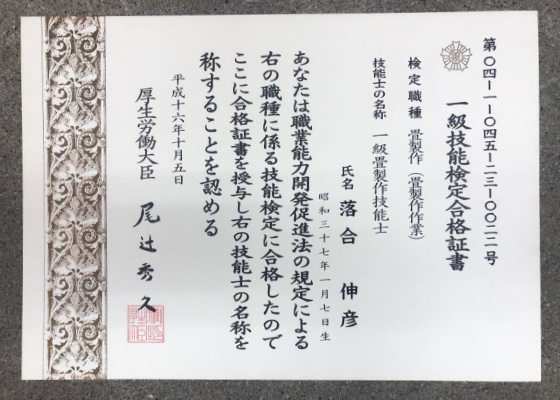 第〇四-一-〇四五-二三-〇〇二二号
一級技能検定合格証書
検定職種 畳製作（畳製作作業）
技能士の名称 一級畳製作技能士
氏名 落合 伸彦
昭和三十七年一月七日生
あなたは職業能力開発促進法の規定による
右の職種に係る技能検定に合格したので
ここに合格証書を授与し右の技能士の名称を
称することを認める
平成十六年十月五日
厚生労働大臣 尾辻秀久